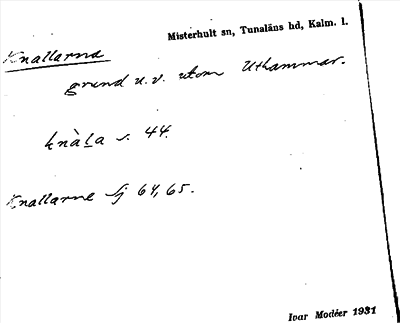 Misterhult sn, Tunaläns hd, Kalm. l.
Knallarna
grund u.v. utom Uthammar.
knàLa s. 44.
Knallarne Sj 64, 65.
Ivar Modéer 1931